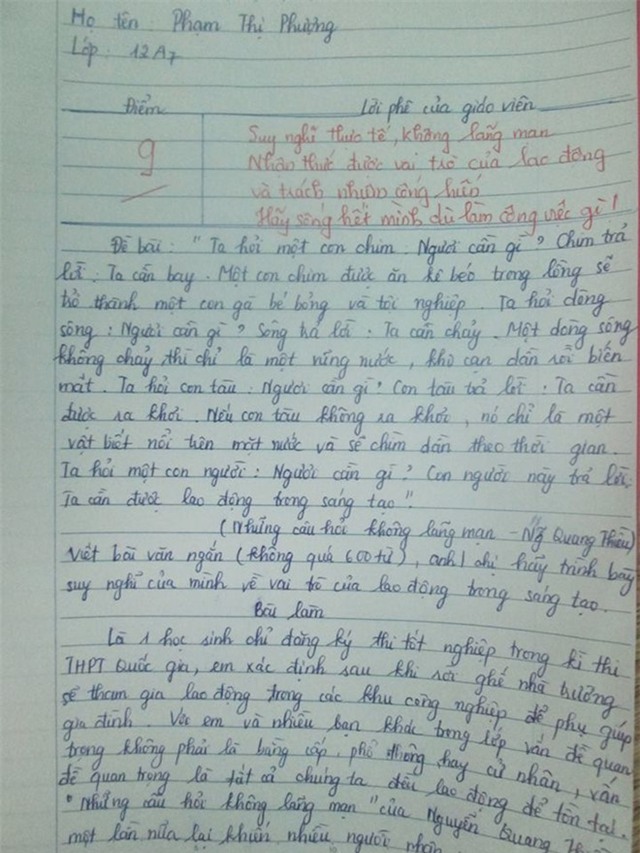 Họ tên: Phạm Thị Phương
Lớp: 12A7
Điểm
Lời phê của giáo viên
9
Suy nghĩ thực tế, không lãng mạn
Nhận thức được vai trò của lao động
và trách nhiệm cống hiến
Hãy sống hết mình dù làm công việc gì!
Đề bài: "Ta hỏi một con chim: Ngươi cần gì? Chim trả
lời: Ta cần bay. Một con chim được ăn kê béo trong lồng sẽ
trở thành một con gà bé bỏng và tội nghiệp. Ta hỏi dòng
sông: Ngươi cần gì? Sông trả lời: Ta cần chảy. Một dòng sông
không chảy thì chỉ là một vũng nước, khô cạn dần rồi biến
mất. Ta hỏi con tàu: Ngươi cần gì? Con tàu trả lời: Ta cần
được ra khơi. Nếu con tàu không ra khơi, nó chỉ là một
vật biết nổi trên mặt nước và sẽ chìm dần theo thời gian.
Ta hỏi một con người: Ngươi cần gì? Con người này trả lời:
Ta cần được lao động trong sáng tạo".
(Những câu hỏi không lãng mạn - Ng~ Quang Thiều)
Viết bài văn ngắn (không quá 600 từ), anh/chị hãy trình bày
suy nghĩ của mình về vai trò của lao động trong sáng tạo.
Bài làm
Là 1 học sinh chỉ đăng ký thi tốt nghiệp trong kì thi
THPT Quốc gia, em xác định sau khi rời ghế nhà trường
sẽ tham gia lao động trong các khu công nghiệp để phụ giúp
gia đình. Với em và nhiều bạn khác trong lớp vấn đề quan
trọng không phải là bằng cấp, phổ thông hay cử nhân, vấn
đề quan trọng là tất cả chúng ta đều lao động để tồn tại.
"Những câu hỏi không lãng mạn" của Nguyễn Quang
một lần nữa lại khiến nhiều người